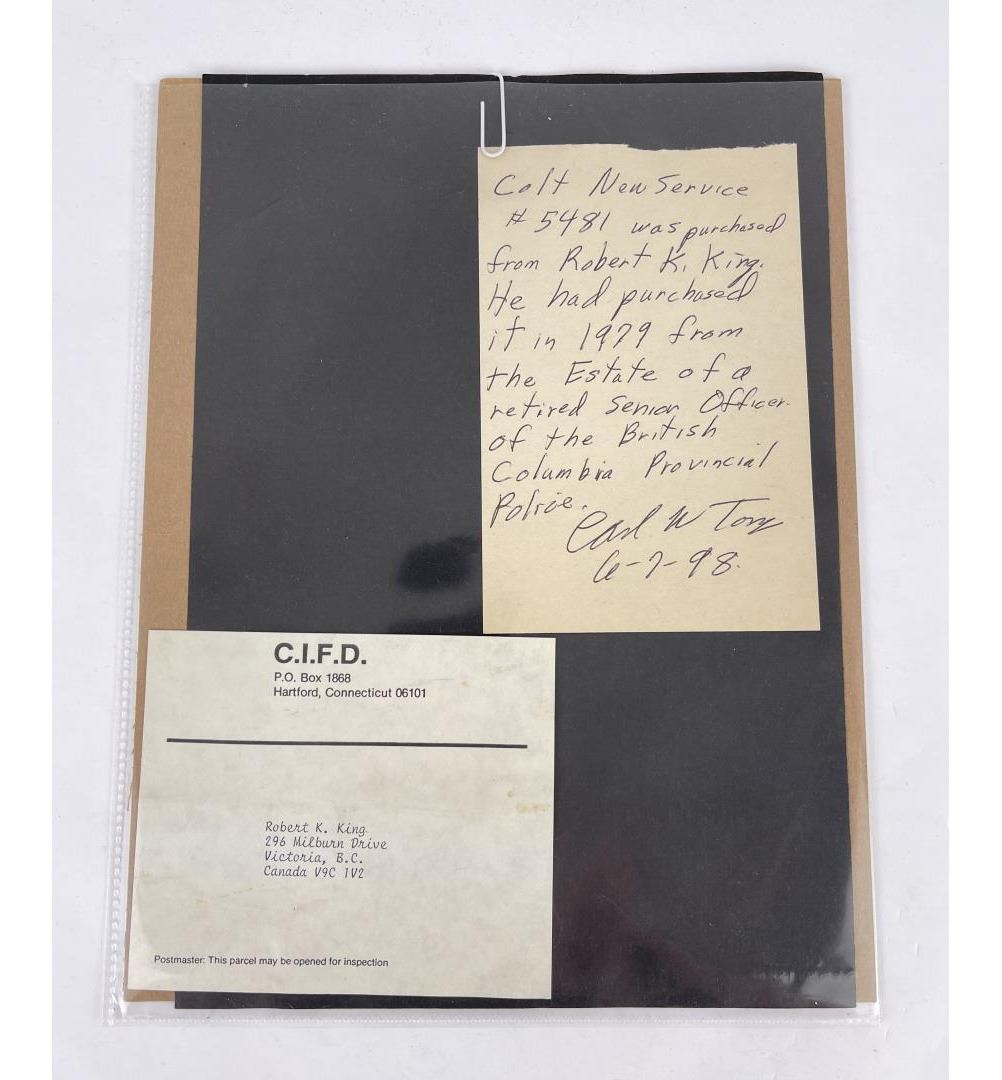 Colt New Service
# 5481 was purchased
from Robert K. King.
He had purchased
it in 1979 from
the Estate of a
retired Senior Officer.
of the British
Columbia Provincial
Police.
Carl W
6-7-98.
C.I.F.D.
P.O. Box 1868
Hartford, Connecticut 06101
Robert K. King
296 Milburn Drive
Victoria, B.C.
Canada V9C 1V2
Postmaster: This parcel may be opened for inspection